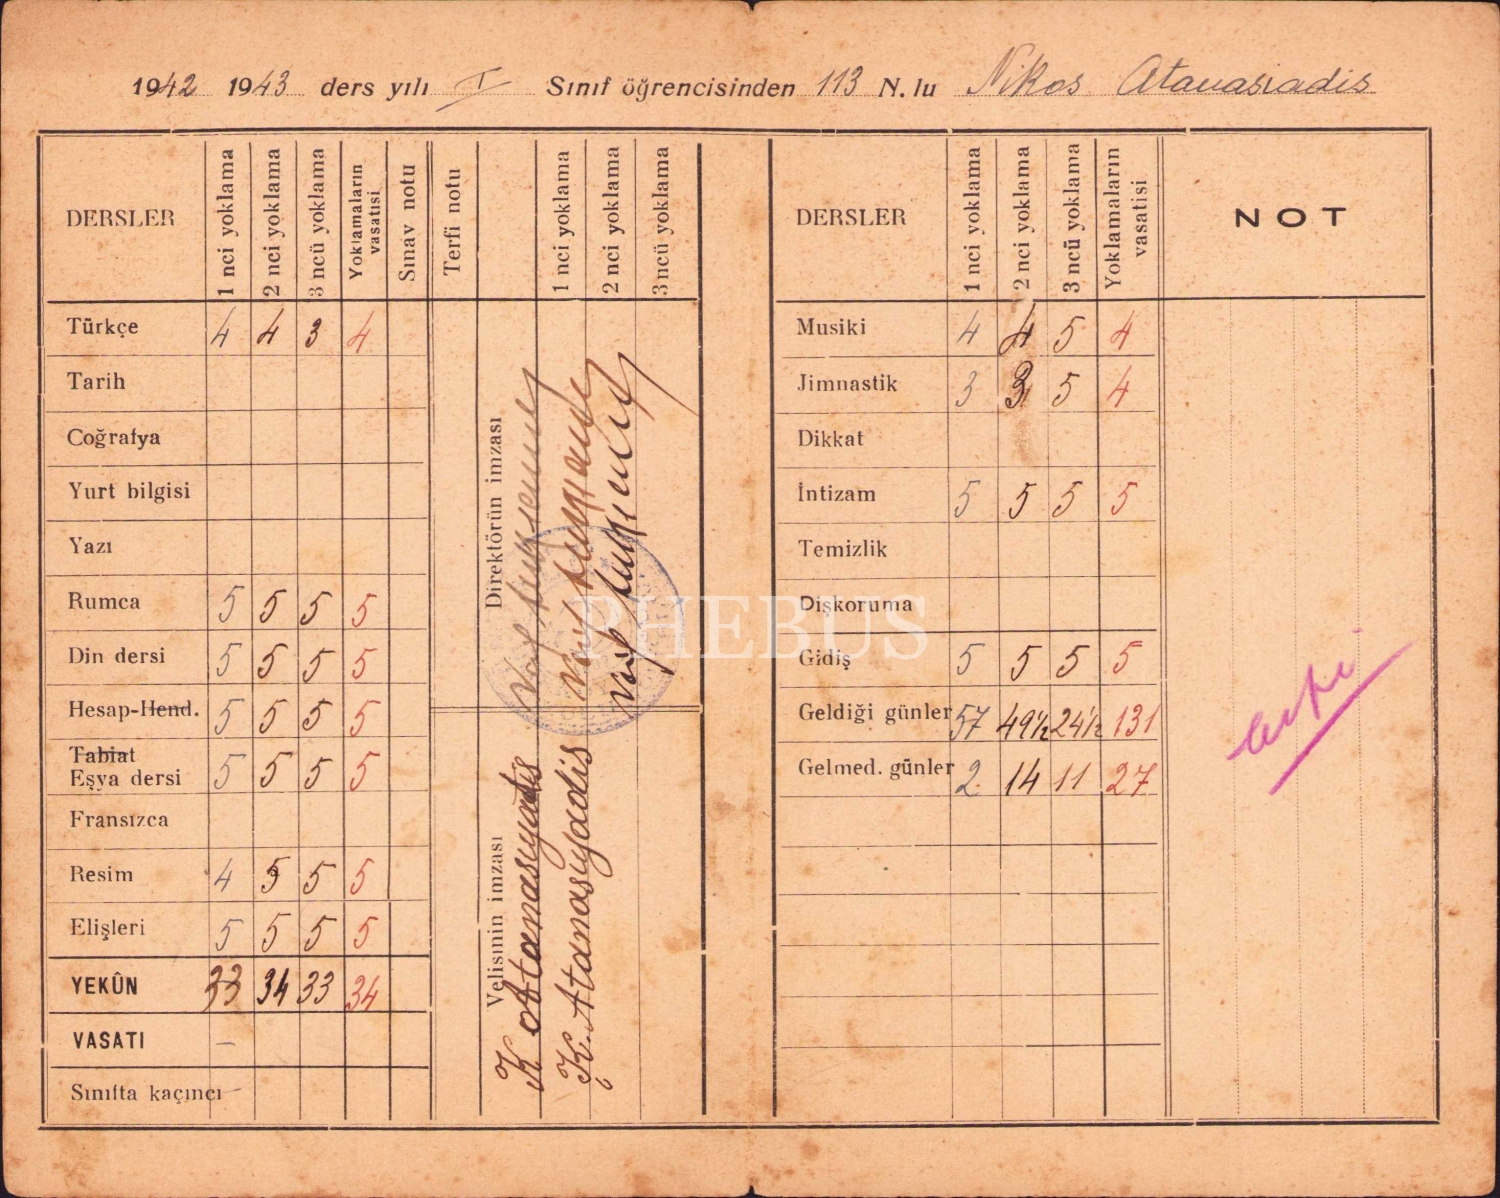 1942 1943 ders yılı I Sınıf öğrencisinden 113 N. lu Nikos Atanasiadis
DERSLER 1 nci yoklama 2 nci yoklama 3 ncü yoklama Yoklamaların vasatisi Sınav notu Terfi notu 1 nci yoklama 2 nci yoklama 3 ncü yoklama
Türkçe 4 4 3 4
Tarih
Coğrafya
Yurt bilgisi
Yazı
Rumca 5 5 5 5
Din dersi 5 5 5 5
Hesap-Hend. 5 5 5 5
Tabiat
Eşya dersi 5 5 5 5
Fransızca
Resim 4 5 5 5
Elişleri 5 5 5 5
YEKÛN 33 34 33 34
VASATI –
Sınıfta kaçıncı –
Direktörün imzası
Velisinin imzası
K Atanasiyadis
K. Atanasiyadis
DERSLER 1 nci yoklama 2 nci yoklama 3 ncü yoklama Yoklamaların vasatisi NOT
Musiki 4 4 5 4
Jimnastik 3 3 5 4
Dikkat
İntizam 5 5 5 5
Temizlik
Dişkoruma
Gidiş 5 5 5 5
Geldiği günler 57 49½ 24½ 131
Gelmed. günler 2 14 11 27
PHEBUS